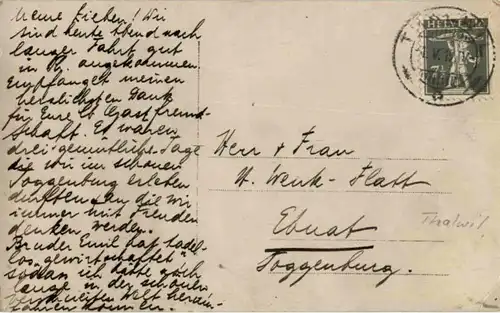 Meine Lieben! Wir
sind heute Abend nach
langer Fahrt gut
in angekommen.
Empfanget meinen
herzlichsten Dank
für Eure Gastfreund-
schaft. Es waren
drei gemütliche Tage
die wir im schönen
Toggenburg erleben
durften an die wir
immer mit Freuden
denken werden.
Bruder Emil hat tadel-
los "gewirtschaftet"
sodass ich hätte noch
lange in der schönen
Welt herum-
fahren können.
Herr & Frau
W. Wenk-Flatt
Ebnat
Toggenburg.
Thalwil
HELVETIA
7½